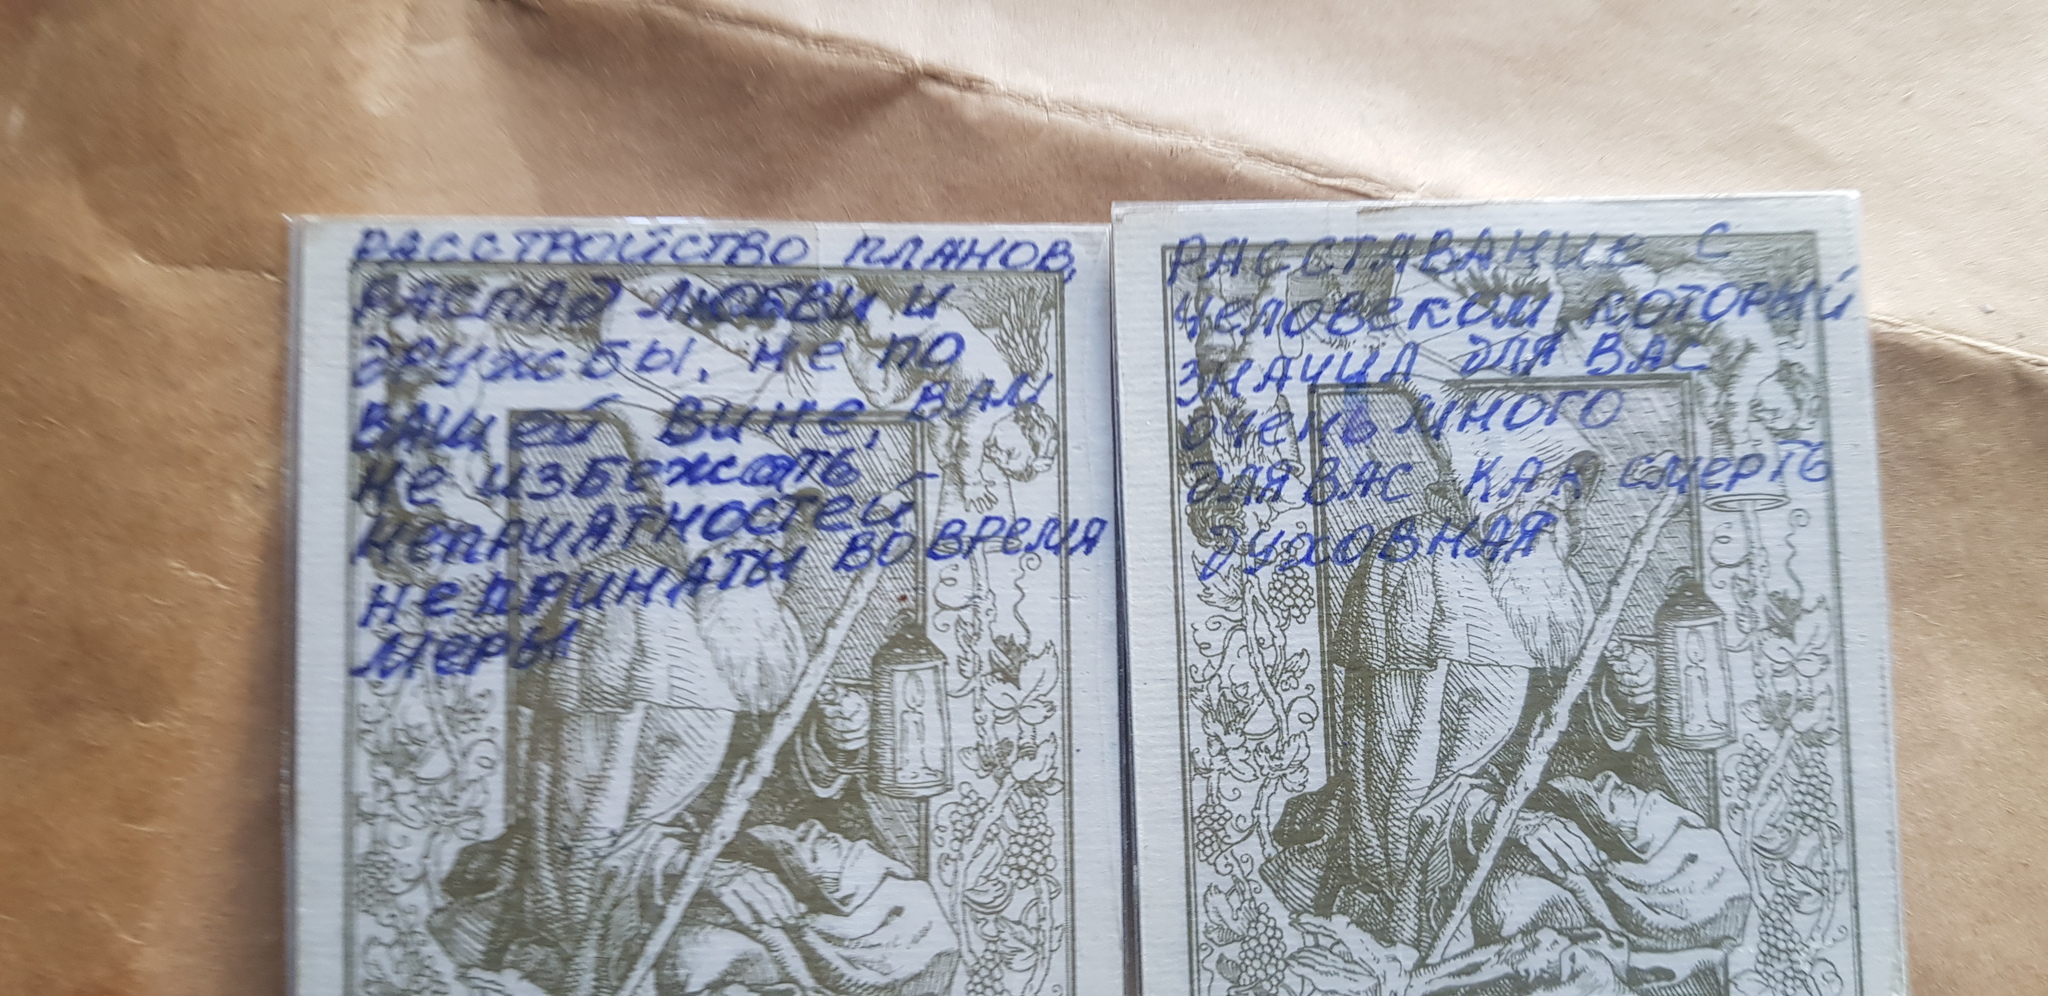 РАССТРОЙСТВО ПЛАНОВ,
РАСПАД ЛЮБВИ И
ДРУЖБЫ, НЕ ПО
ВАШЕЙ ВИНЕ, ВАМ
НЕ ИЗБЕЖАТЬ
НЕПРИАТНОСТЕЙ –
НЕПРИНАТЫ ВО ВРЕМЯ
МЕРЫ
РАССТАВАНИЕ С
ЧЕЛОВЕКОМ, КОТОРЫЙ
ЗНАЧИЛ ДЛЯ ВАС
ОЧЕНЬ МНОГО
ДЛЯ ВАС КАК СМЕРТЬ
ДУХОВНАЯ